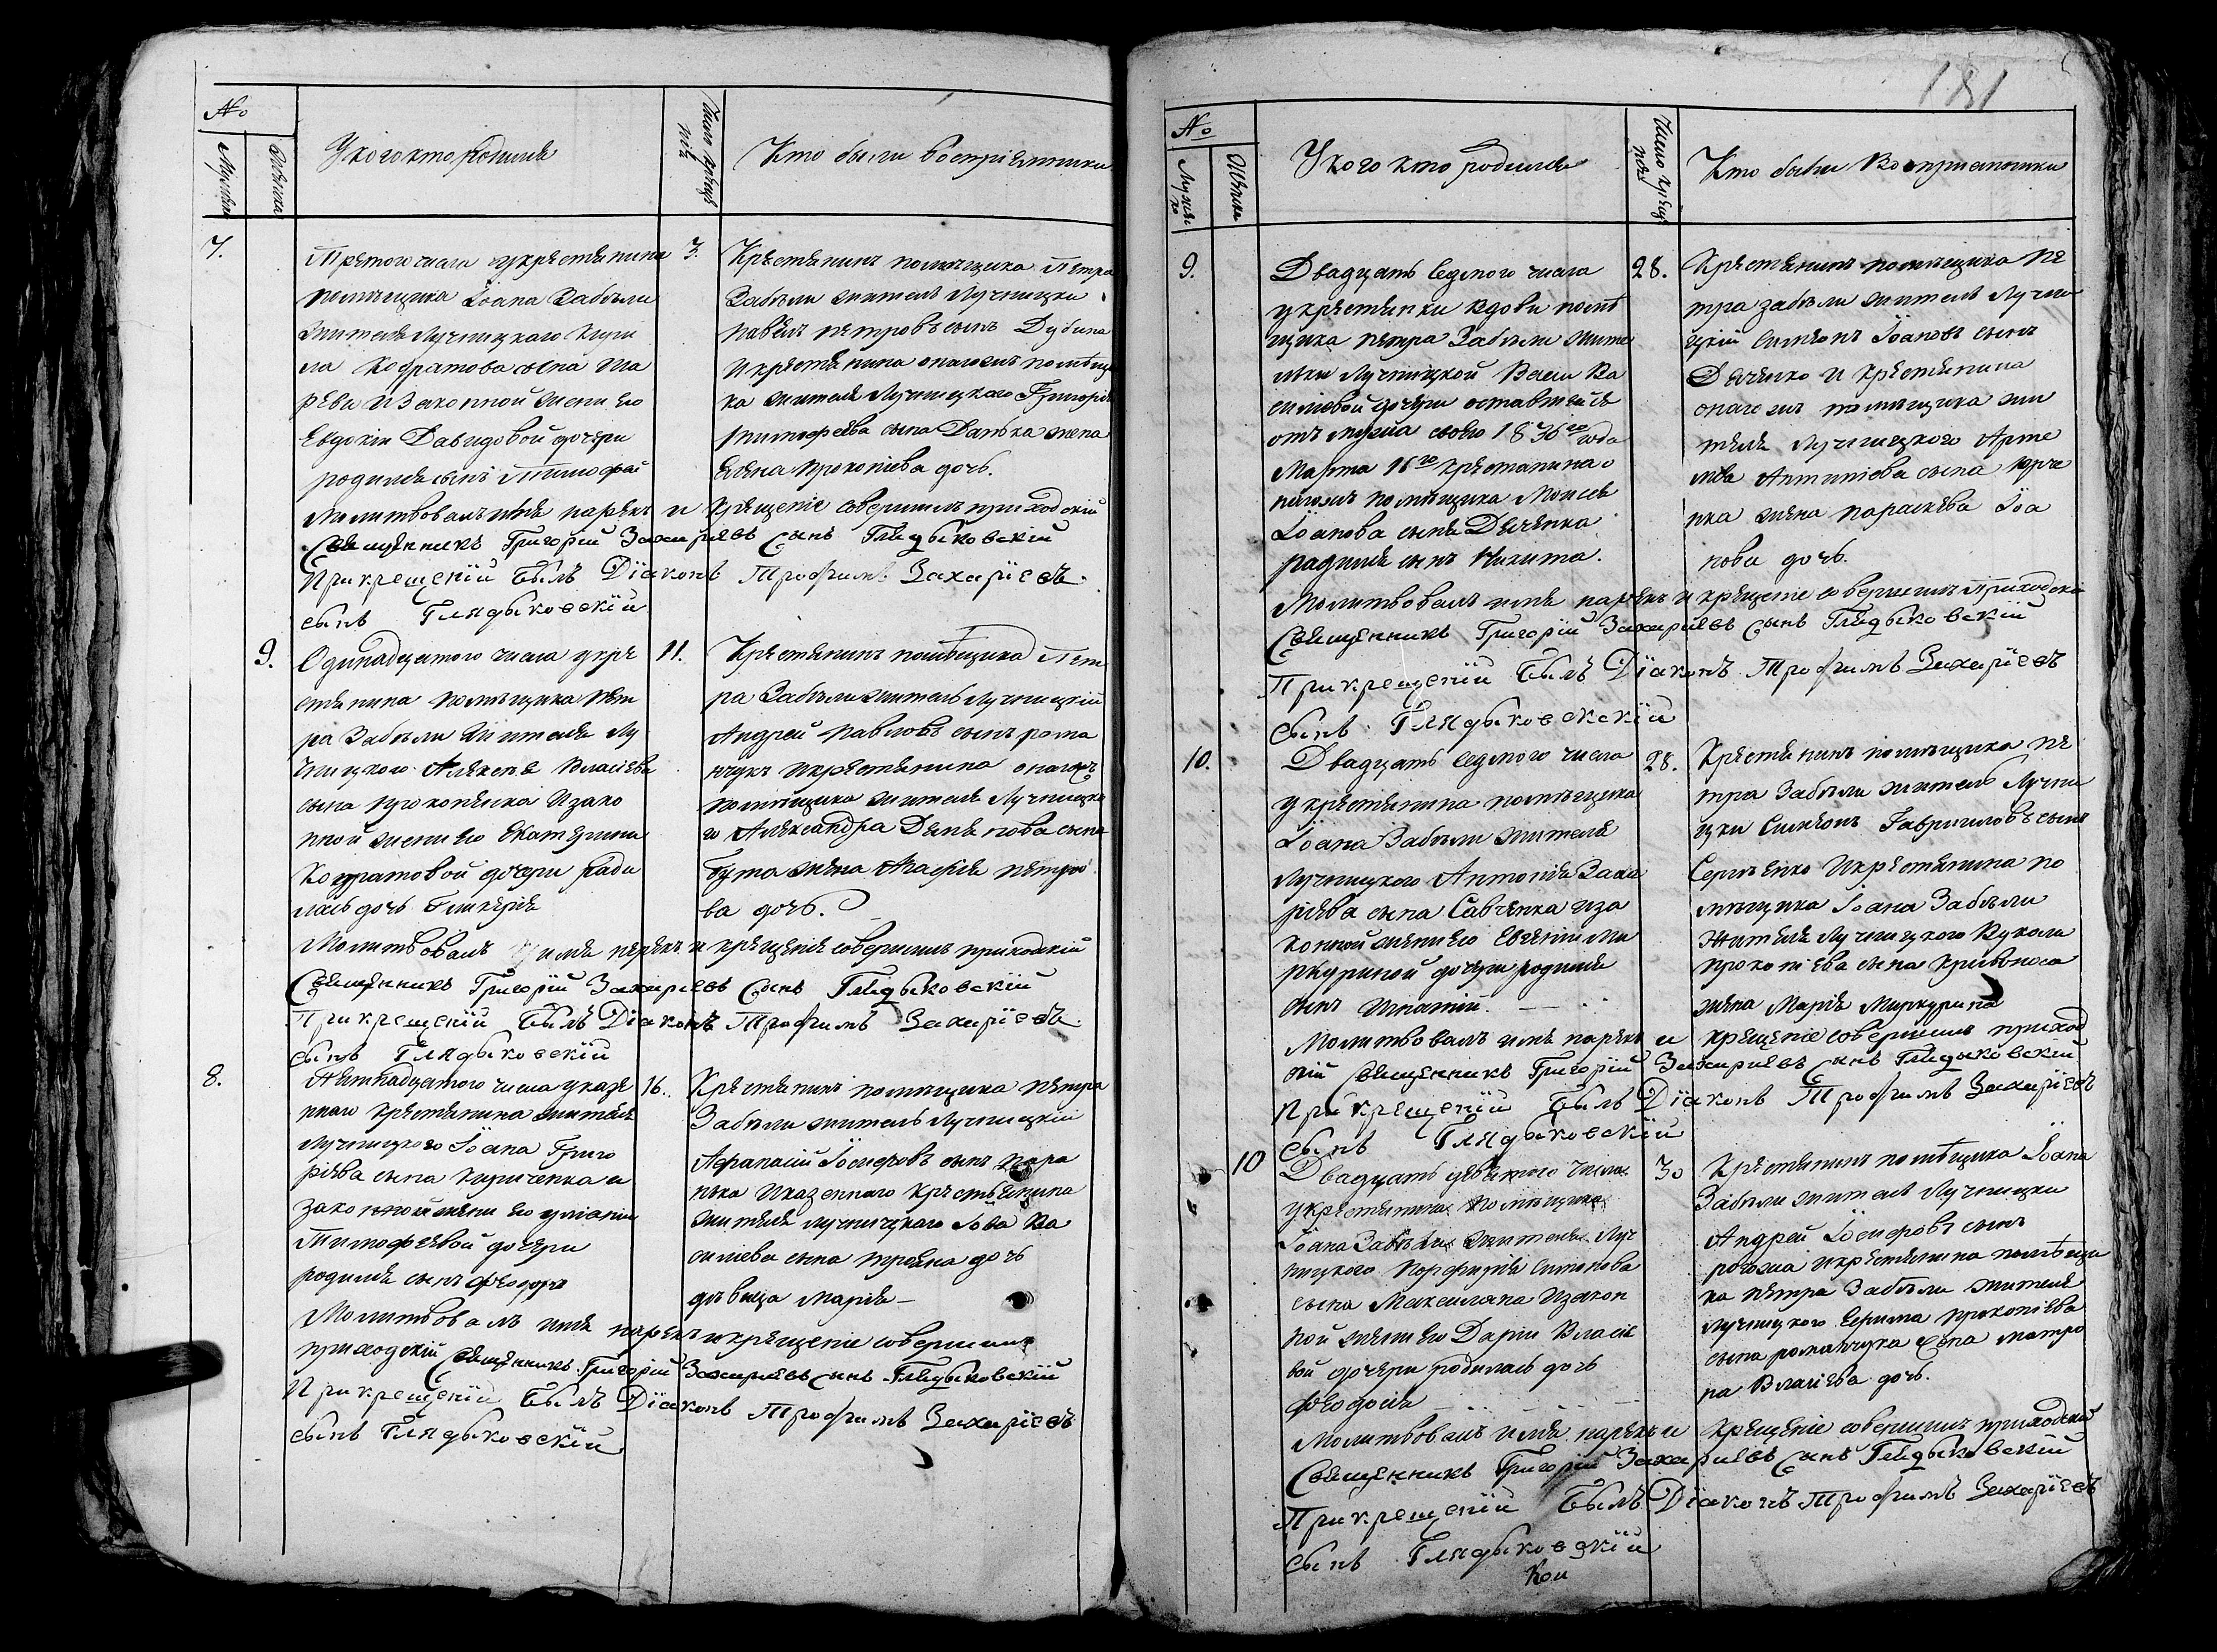 №
Мужеска
Женска
У кого кто родился
Число крещенія
Кто были воспріемники
7.
Третого числа у крестянина
помещика Іоана Забѣли
жителя Лучницкаго Кири
ла Кодратова сына
рева и Законной жени его
Евдокіи Давидовой дочери
родился сынъ Тимофей
3.
Крестянинъ помещика Петра
Забѣли житель Лучницки
Павелъ Петровъ сынъ Дубина
и крестянина онагожъ помѣщи
ка жителя Лучницкаго Григорія
Тимофеева сына Данька жена
Елена Прокопіева дочь.
Молитвовалъ имя нарекъ и крещеніе совершилъ приходскій
Священникъ Григорій Захаріевъ сынъ Глядыковскій
При крещеніи былъ Діаконъ Трофимъ Захаріевъ
сынъ Глядыковскій
9.
Одинадцатого числа у кре
стянина помещика Пет
ра Забѣли жителя Лу
чницкого Алексея Власіева
сына Прокопенка и зако
нной жени его Екатерини
Кодратовой дочери роди
лась дочь Гликерія
11.
Крестянинъ помѣщика Пет
ра Забѣли житель Лучницкій
Андрей Павловъ сынъ рома
нчукъ и крестянина онагожъ
помѣщика жителя Лучницко
го Александра Демянова сына
Бута жена Агафія Петро
ва дочь.
Молитвовалъ и имя нарекъ и крещеніе совершилъ приходскій
Священникъ Григорій Захаріевъ сынъ Глядыковскій
При крещеніи былъ Діаконъ Трофимъ Захаріевъ
сынъ Глядыковскій
8.
Петнадцатого числа у казе
ннаго крестянина жителя
Лучницкого Іоана Григо
ріева сына Кириченка и
законной жени его Уліаніи
Тимофеевой дочери
родился сынъ Феодоръ
16.
Крестянинъ помещика Петра
Забѣли житель Лучницкій
Афанасій Іосифовъ сынъ
нька и казеннаго крестянина
жителя Лучницкаго Іова Ва
силіева сына дочь
дѣвица Марія
Молитвовалъ имя нарекъ и крещеніе совершилъ
приходскій Священникъ Григорій Захаріевъ сынъ Глядыковскій
При крещеніи былъ Діаконъ Трофимъ Захаріевъ
сынъ Глядыковскій
181
№
Мужеско
Женска
У кого кто родился
Число крещенія
Кто были Восприемники
9.
Двадцать седмого числа
у крестянки вдови помѣ
щика Петра Забѣли жите
лки Лучницкой Васи Ва
силіевой дочери оставшейся
отъ мужа своего 1836го года
Марта 16го крестянина о
нагожъ помѣщика Моисея
Іоанова сына Дяченка
радился сынъ Никита.
28.
Крестянинъ помѣщика Пе
тра Забѣли житель Лучни
цкій Симеонъ Іоановъ сынъ
Дяченко и крестянина
онагожъ помѣщика жи
теля Лучницкого Арте
мва Антипіева сына Юрче
нка жена Параскева Іоа
нова дочь.
Молитвовалъ имя нарекъ и крещеніе совершилъ Приходскій
Священникъ Григорій Захаріевъ сынъ Глядыковскій
При крещеніи былъ Діаконъ Трофимъ Захаріевъ
сынъ Глядыковскій
10.
Двадцать седмого числа
у крестянина помѣщика
Іоана Забѣли жителя
Лучницкого Антонія Заха
ріева сына Савченка и за
конной жени его Евгеніи Ме
ркуриной дочери родился
сынъ Игнатій.
28.
Крестянинъ помѣщика Пе
тра Забѣли житель Лучни
цки Симеонъ Гавриловъ сынъ
Сергѣенко и крестянина по
мѣщика Іоана Забѣли
Жителя Лучницкого Вукола
Прокопіева сына Кривоноса
жена Марія Меркурина
Молитвовалъ имя нарекъ и крещеніе совершилъ приход
скій Священникъ Григорій Захаріевъ сынъ Глядыковскій
При крещеніи былъ Діаконъ Трофимъ Захаріевъ
сынъ Глядыковскій
10
Двадцать девятого числа
у крестянина помѣщика
Іоана Забѣли жителя Луч
ницкого Порфирія Симонова
сына Максимача и закон
ной жени его Даріи Власіе
вой дочери родилась дочь
Феодосія
30
Крестянинъ помѣщика Іоана
Забѣли житель Лучницки
Андрей Іосифовъ сынъ
рогожа и крестянина помѣщи
ка Петра Забѣли жителя
Лучницкого Ефима Прокопіева
сына романчука жена Матро
на Власіева дочь.
Молитвовалъ имя нарекъ и крещеніе совершилъ приходскій
Священникъ Григорій Захаріевъ сынъ Глядыковскій
При крещеніи былъ Діаконъ Трофимъ Захаріевъ
сынъ Глядыковскій